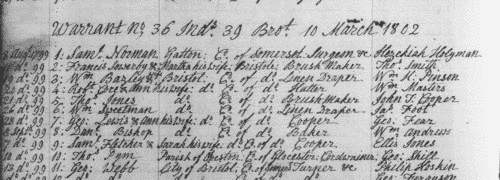 Warrant No 36 Indt. 39 Brot. 10 March 1802
99 1: Saml. Norman Yatton Co. of Somerset Surgeon & Hezekiah Holyman
do. 99 2: Francis & Martha his wife Bristol Brush Maker Thos. Smith
do. 99 3: Wm. Bristol do. Linen Draper Wm. K. Pinson
do. 99 4: Robt. & Ann his wife do. Co. of do. Hatter Wm. Masters
do. 99 5: Thos. Jones do. Co. of do. Brush Maker John T. Cooper
do. 99 6: Wm. do. Co. of do. Linen Draper Jas. Foot
do. 99 7: Geo. Lewis & Ann his wife do. Co. of do. Cooper Geo. Fear
Sept. 99 8: Danl. Bishop do. Co. of do. Baker Wm. Andrews
do. 99 9: Saml. Fletcher & Sarah his wife do. Co. of do. Cooper Ellis Jones
do. 99 10: Thos. Pym Parish of Co. of Glocester Cordwainer Geo. Shill
do. 99 11: Geo. Webb City of Bristol Co. of Turner &c. Philip Hoskin
Ferguson